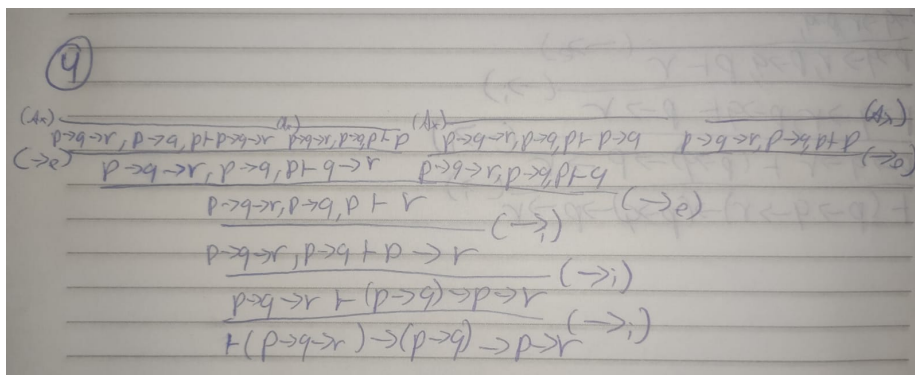 4
(Ax) (Ax) (Ax) (Ax)
p→q→r, p→q, p ⊢ p→q→r p→q→r, p→q, p ⊢ p p→q→r, p→q, p ⊢ p→q p→q→r, p→q, p ⊢ p
(→e) (→e)
p→q→r, p→q, p ⊢ q→r p→q→r, p→q, p ⊢ q
(→e)
p→q→r, p→q, p ⊢ r
(→i)
p→q→r, p→q ⊢ p→r
(→i)
p→q→r ⊢ (p→q)→p→r
(→i)
⊢ (p→q→r)→(p→q)→p→r